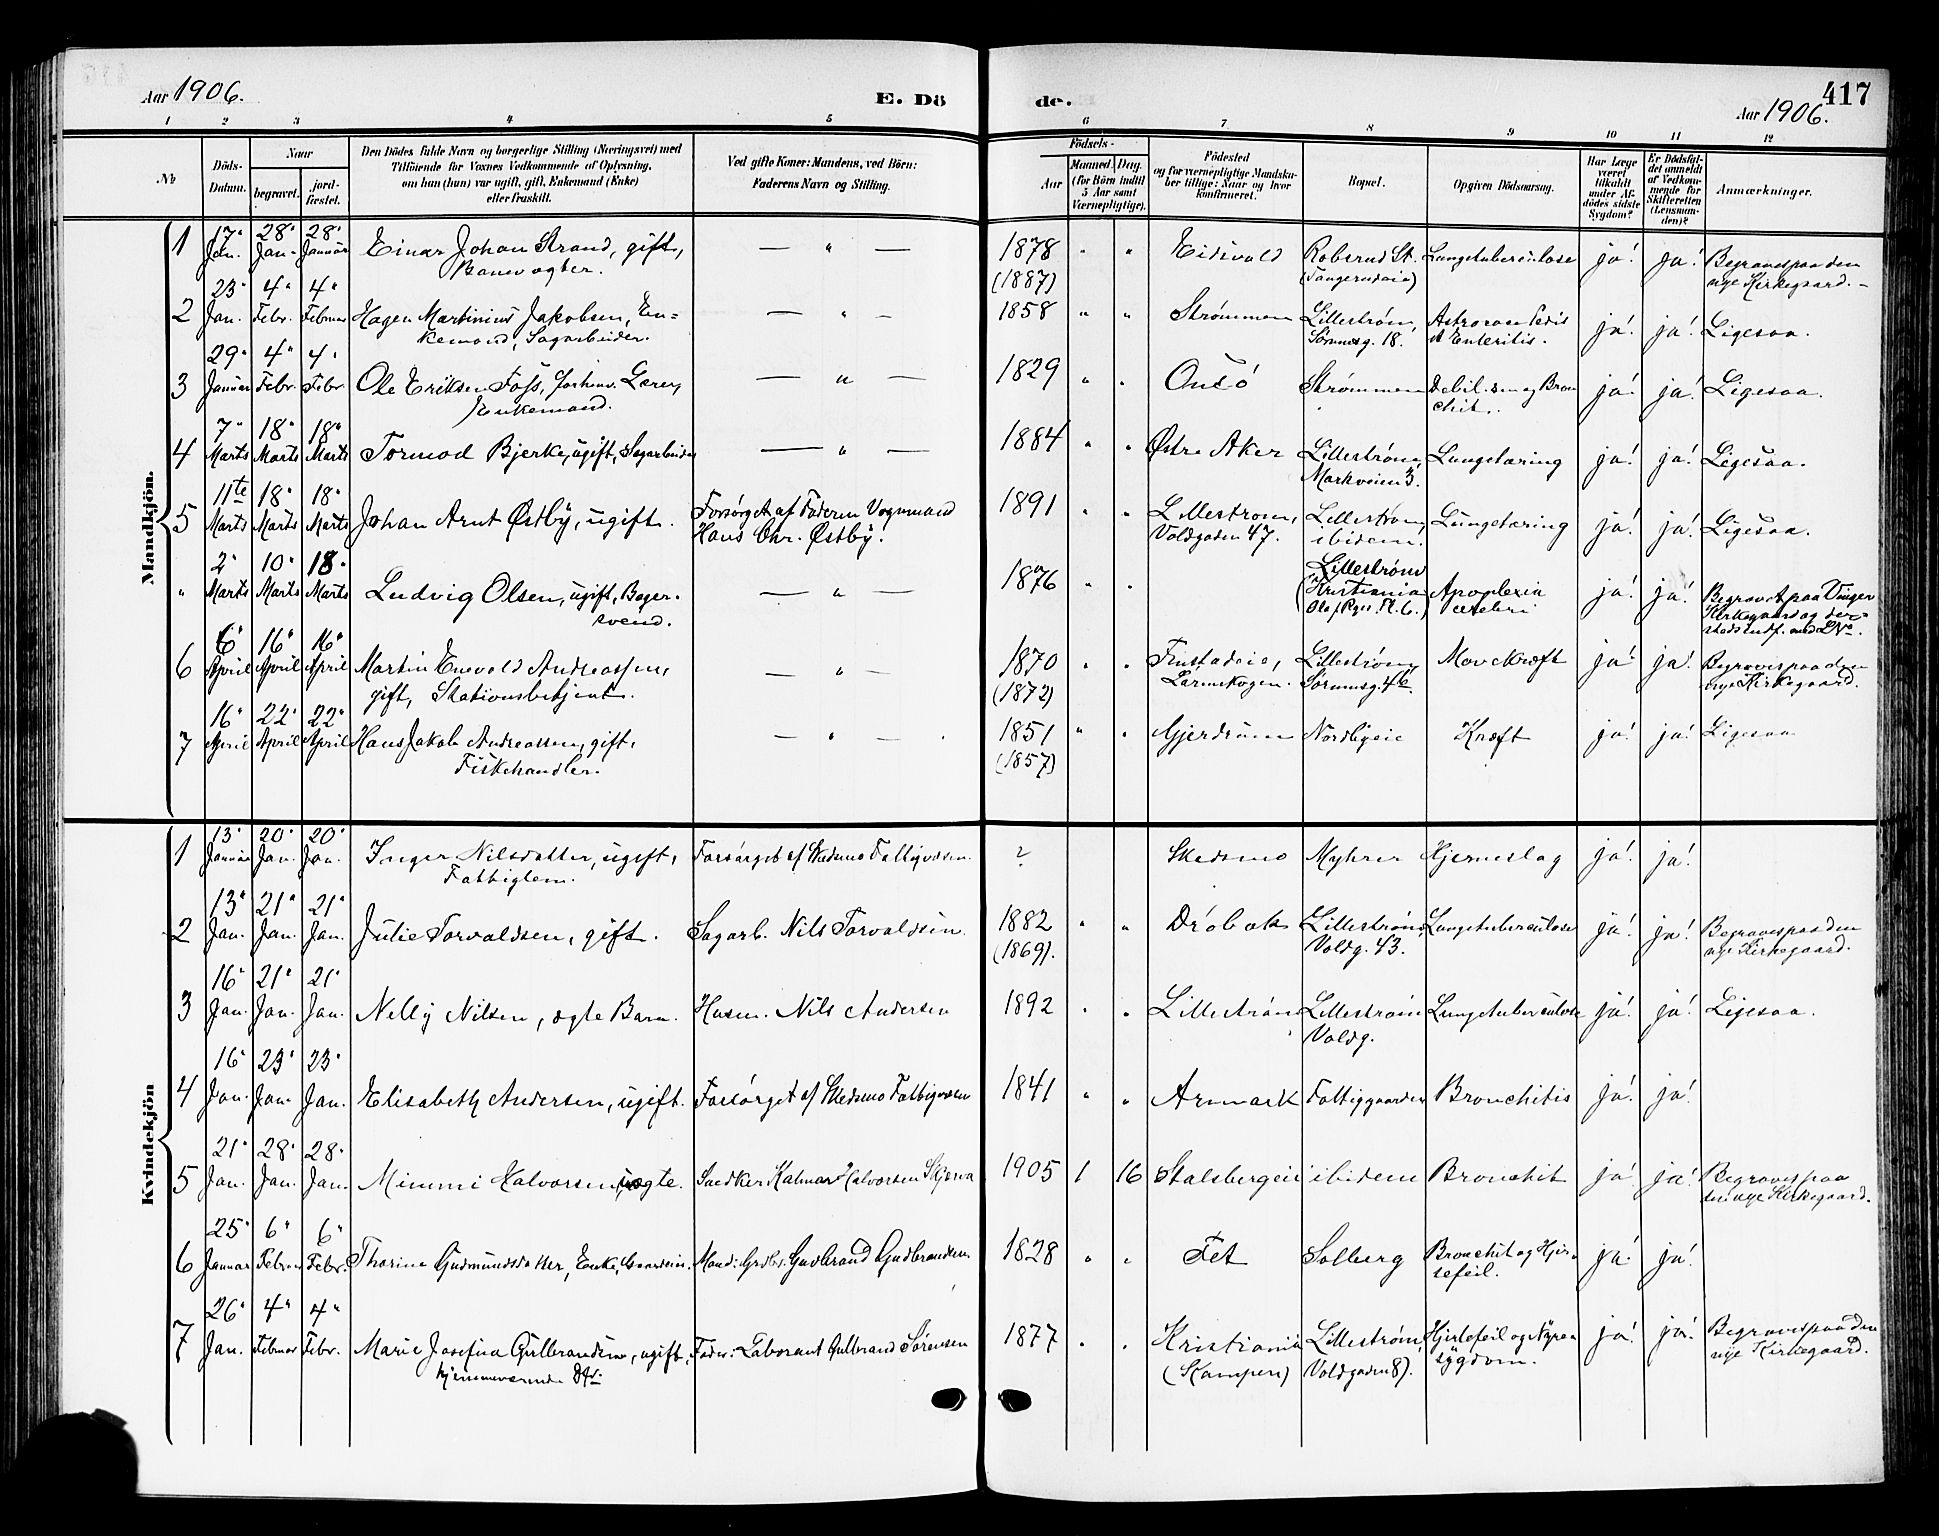 Aar 1906.
E. Dö
de.
417
Aar 1906.
1 2 3 4 5 6 7 8 9 10 11 12
№
Döds-Datum.
Naar
begravet.
jord-fæstet.
Den Dödes fulde Navn og borgerlige Stilling (Næringsvei) med
Tilföiende for Voxnes Vedkommende af Oplysning,
om han (hun) var ugift, gift, Enkemand (Enke)
eller fraskilt.
Ved gifte Koner: Mandens, ved Börn:
Faderens Navn og Stilling.
Födsels-
Aar
Maaned. Dag.
(for Börn indtil 5 Aar samt Værnepligtige).
Födested
og for værnepligtige Mandskaber tillige: Naar og hvor konfirmeret.
Bopæl.
Opgiven Dödsaarsag.
Har Læge været tilkaldt under Afdödes sidste Sygdom?
Er Dödsfaldet anmeldt af Vedkommende for Skifteretten (Lensmanden)?
Anmærkninger.
Mandkjön.
1 17" Jan. 28" Jan. 28" Januar Einar Johan Strand, gift, Banevogter. — " — 1878 (1887) " " Eidsvold Robsrud St. Lungetuberculose ja! ja! Begravet paa den nye Kirkegaard. –
2 23" Jan. 4" Febr. 4" Februar Hagen Martinius Jakobsen, Enkemand, Sagarbeider. — " — 1858 " " Strømmen Lillestrøm, Sørumsg. 18. Enteritis. ja! ja! Ligesaa.
3 29" Januar 4" Febr. 4" Febr. Ole Eriksen Foss, Enkemand. — " — 1829 " " Onsö Strømmen og Bronchit. ja! ja! Ligesaa.
4 7" Marts 18" Marts 18" Marts Tormod Bjerke, ugift, Sagarbeider — " — 1884 " " Østre Aker Lillestrøm, Markveien 3. Lungetæring ja! ja! Ligesaa.
5 11te Marts 18" Marts 18" Marts Johan Arnt Østby, ugift. Forsørget af Faderen Vognmand Hans Chr. Østby. 1891 " " Lillestrøm, Voldgaden 47. Lillestrøm, ibidem. Lungetæring ja! ja! Ligesaa.
" 2" Marts 10" Marts 18" Marts Ludvig Olsen, ugift, Bagersvend. — " — 1876 " " Lillestrøm (Kristiania Apoplexia cerebri ja! ja! Begravet paa Vinger Kirkegaard og
6 6" April 16" April 16" April Martin Enevold Andreassen, gift, Stationsbetjent. — " — 1870 (1872) " " Lørenskogen. Lillestrøm, Sørumsg. 46. Mavekræft ja! ja! Begravet paa den nye Kirkegaard.
7 16" April 22" April 22" April Hans Jakob Andreassen, gift, Fiskehandler. — " — 1851 (1857) " " Gjerdrum Nordbyeie Kræft ja! ja! Ligesaa
Kvindekjön
1 13" Januar 20" Jan. 20" Jan. Inger Nilsdatter, ugift, Fattiglem. Forsørget af Skedsmo Fattigvæsen. ? Skedsmo Myhrer Hjerneslag ja! ja!
2 13" Jan. 21" Jan. 21" Jan. Julie Torvaldsen, gift. Sagarb. Nils Torvaldsen. 1882 (1869). " " Dröbak Lillestrøm, Voldg. 43. Lungetuberculose ja! ja! Begravet paa den nye Kirkegaard.
3 16" Jan. 21" Jan. 21" Jan. Nelly Nilsen, ægte Barn. Husm. Nils Andersen 1892 " " Lillestrøm Lillestrøm Voldg. Lungetuberculose ja! ja! Ligesaa.
4 16" Jan. 23" Jan. 23" Jan. Elisabeth Andersen, ugift. Forsørget af Skedsmo Fattigvæsen 1841 " " Aremark Fattiggaarden Bronchitis ja! ja!
5 21" Jan. 28" Jan. 28" Jan. Mimmi Halvorsen, uægte. Snedker Halvorsen Skjerva 1905 1 16 Stalsbergeie ibidem Bronchit ja! ja! Begravet paa den nye Kirkegaard.
6 25" Januar 6" Februar 6" Febr. Thorine Gudmundsdatter, Enke, Mand: Grdbr. Gudbrand Gudbrandsen. 1828 " " Fet Solberg Bronchit og Hjertefeil. ja! ja!
7 26" Jan. 4" Februar 4" Febr. Marie Josefine Gulbrandsen, ugift, hjemmeværende Dtr. Fader: Laborant Gulbrand Sørensen 1877 " " Kristiania (Kampen) Lillestrøm, Voldgaden 8). Hjertefeil og Nyresygdom. ja! ja! Begravet paa den nye Kirkegaard.